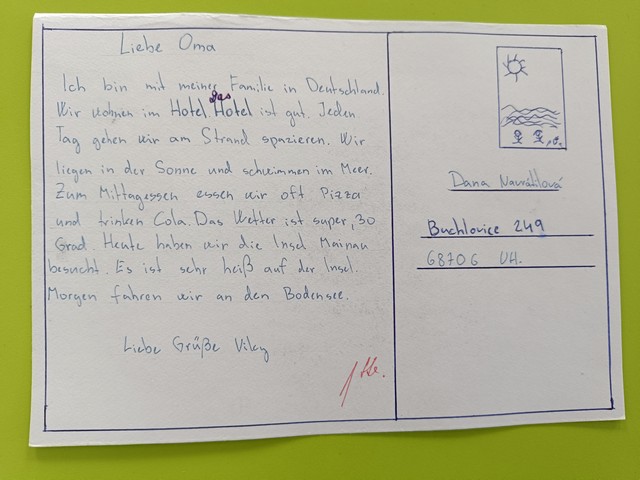 Liebe Oma
Ich bin mit meiner Familie in Deutschland.
Wir wohnen im Hotel. Das Hotel ist gut. Jeden
Tag gehen wir am Strand spazieren. Wir
liegen in der Sonne und schwimmen im Meer.
Zum Mittagessen essen wir oft Pizza
und trinken Cola. Das Wetter ist super, 30
Grad. Heute haben wir die Insel Mainau
besucht. Es ist sehr heiß auf der Insel.
Morgen fahren wir an den Bodensee.
Liebe Grüße
Dana Navrátilová
Buchlovice 249
68706 UH.